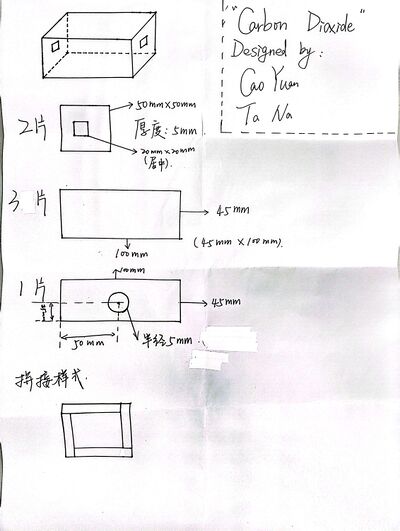 "Carbon Dioxide"
Designed by:
Cao Yuan
Ta Na
50mm×50mm
2片
厚度:5mm
20mm×20mm
(居中).
3片
45mm
100mm
(45mm×100mm).
1片
100mm
45mm
50mm
半径5mm.
拼接样式.